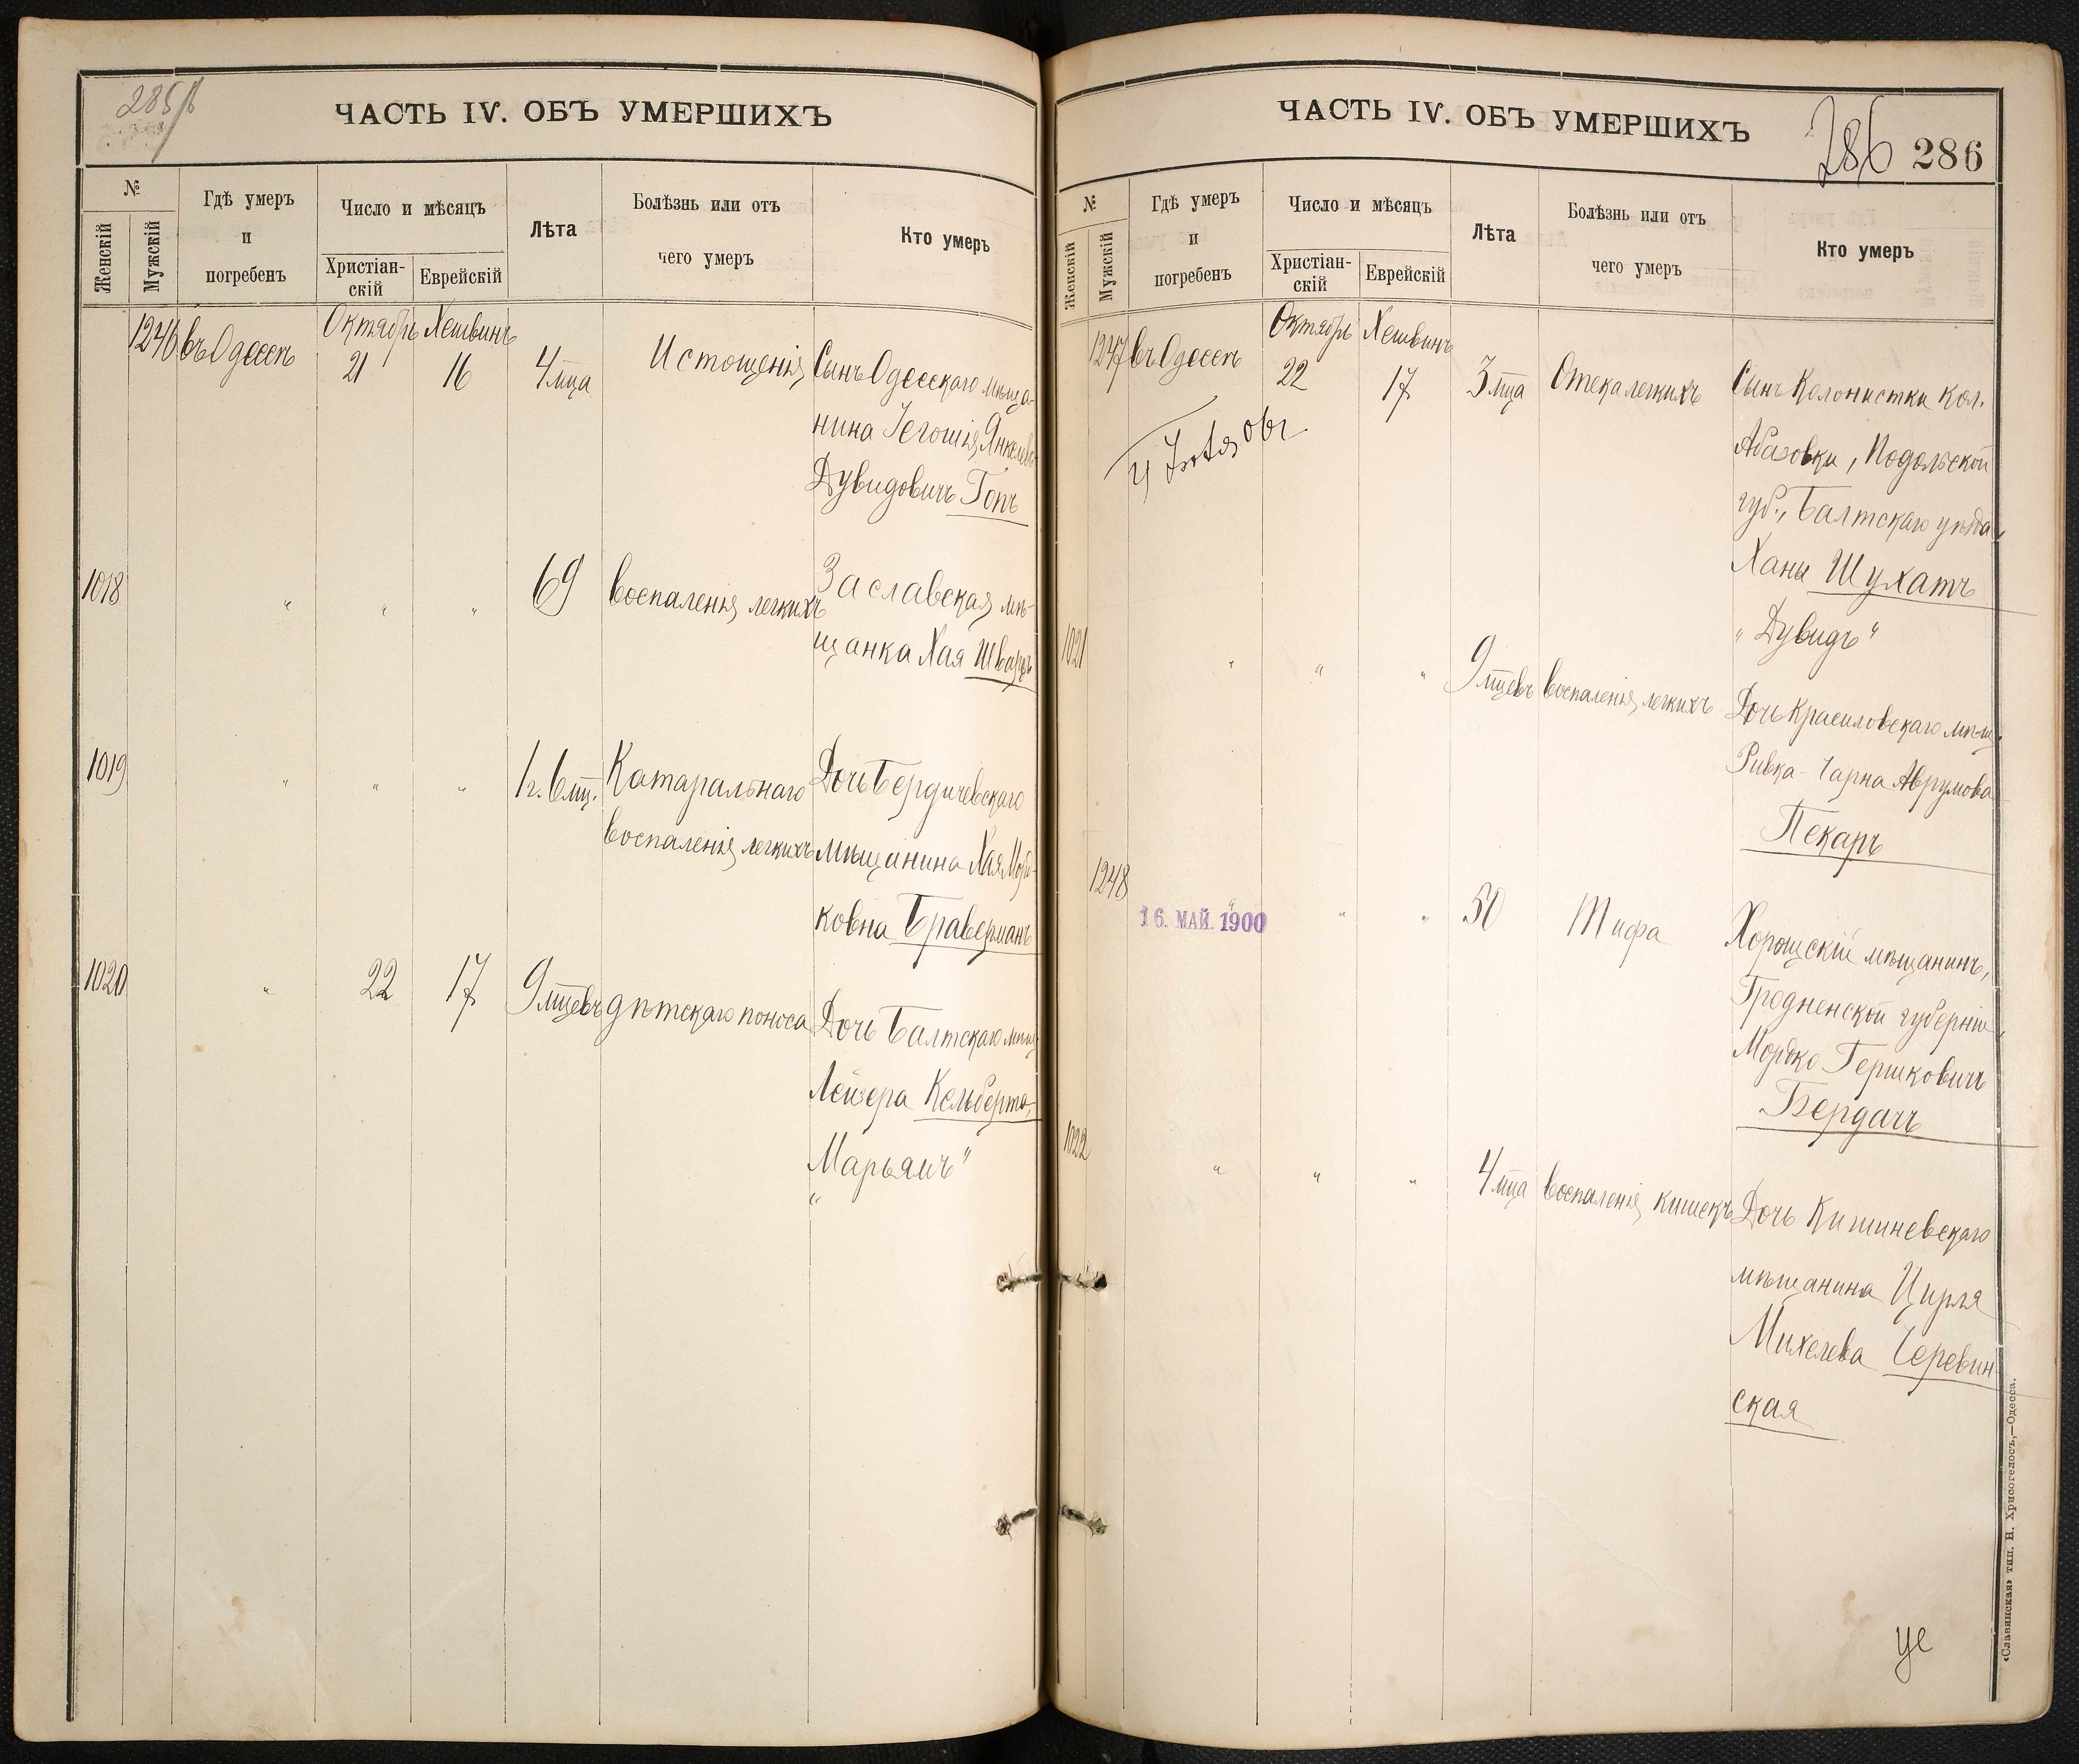 285
ЧАСТЬ IV. ОБЪ УМЕРШИХЪ
№
Женскій
Мужскій
Гдѣ умеръ
и
погребенъ
Число и мѣсяцъ
Христіан-
скій
Еврейскій
Лѣта
Болѣзнь или отъ
чего умеръ
Кто умеръ
Октябрь Хешвинъ
1246 въ Одессѣ 21 16 4 мца Истощенія Сынъ Одесскаго мѣща-
нина Іегошія Янкелевъ
Дувидовичъ Гопъ
1018 " " " 69 воспаленія легкихъ Заславская мѣ-
щанка Хая Шварцъ
1019 " " " 1 г. 6 мц. Катаральнаго Дочь Бердичевскаго
воспаленія легкихъ мѣщанина Хая Мордь-
ковна Браверманъ
1020 " 22 17 9 мцевъ дѣтскаго поноса Дочь Балтскаго мѣщ.
Лейзера Кельберта,
"Марьямъ"
ЧАСТЬ IV. ОБЪ УМЕРШИХЪ
286 286
№
Женскій
Мужскій
Гдѣ умеръ
и
погребенъ
Число и мѣсяцъ
Христіан-
скій
Еврейскій
Лѣта
Болѣзнь или отъ
чего умеръ
Кто умеръ
Октябрь Хешвинъ
1247 въ Одессѣ 22 17 3 мца Отека легкихъ Сынъ Колонистки кол.
Абазовки, Подольской
губ., Балтскаго уѣзда,
Ханы Шухатъ
"Дувидъ"
1021 " " " 9 мцевъ воспаленія легкихъ Дочь Красиловскаго мѣщ.
Ривка-Чарна Аврумова
Пекарь
1248 " " " 50 Тифа Хорощскій мѣщанинъ,
16. МАЙ. 1900
Гродненской губерніи,
Мордко Гершковичъ
Бердачъ
1022 " " " 4 мца воспаленія кишекъ Дочь Кишиневскаго
мѣщанина Цирля
Михелева Черевин-
ская
«Славянская» тип. Н. Хрисогелосъ,—Одесса.